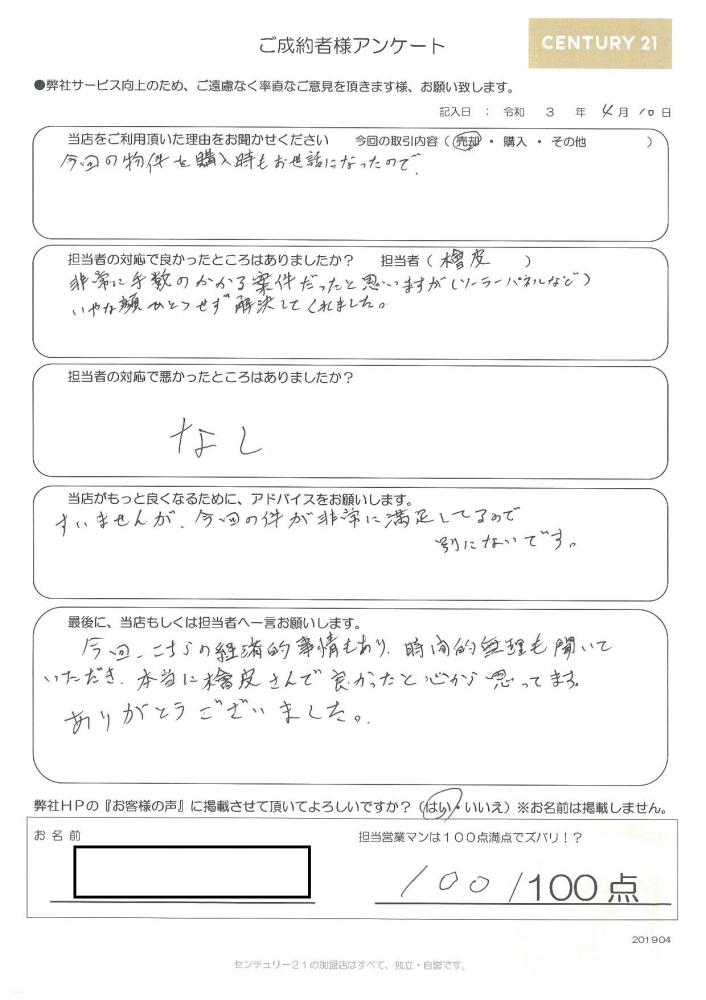 ご成約者様アンケート
CENTURY 21
●弊社サービス向上のため、ご遠慮なく率直なご意見を頂きます様、お願い致します。
記入日 : 令和 3 年 4月 10日
当店をご利用頂いた理由をお聞かせください 今回の取引内容(売却・購入・その他 )
今回の物件を購入時もお世話になったので、
担当者の対応で良かったところはありましたか? 担当者( 檜皮 )
非常に手数のかかる案件だったと思いますが(ソーラーパネルなど)
いやな顔ひとつせず解決してくれました。
担当者の対応で悪かったところはありましたか?
なし
当店がもっと良くなるために、アドバイスをお願いします。
すいませんが、今回の件が非常に満足してるので
別にないです。
最後に、当店もしくは担当者へ一言お願いします。
今回、こちらの経済的事情もあり、時間的無理も聞いて
いただき、本当に檜皮さんで良かったと心から思ってます。
ありがとうございました。
弊社HPの『お客様の声』に掲載させて頂いてよろしいですか?(はい・いいえ)※お名前は掲載しません。
お名前
担当営業マンは100点満点でズバリ!?
100/100点
201904
センチュリー21の加盟店はすべて、独立・自営です。